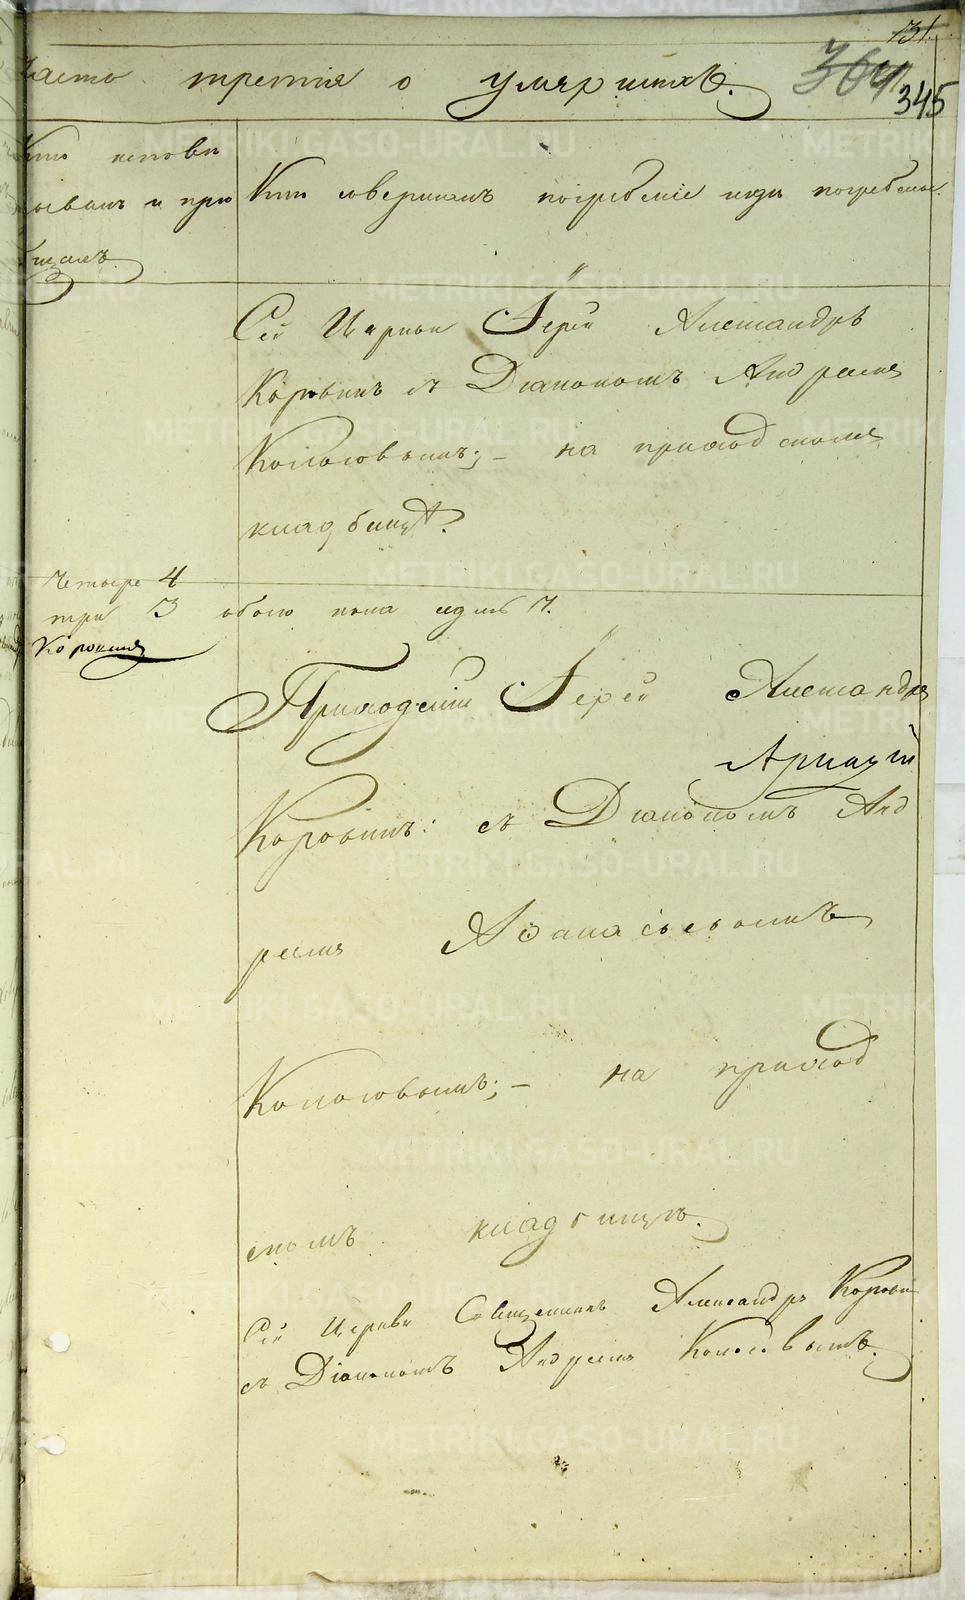 131.
Часть третия о умершихъ.
364
345
Кто исповѣ
дывалъ и прі
общалъ.
Кто совершалъ погребеніе и гдѣ погребены.
Сей Церкви Іерей Александръ
Коровинъ съ Діакономъ Андреемъ
Колосовымъ; – на приходскомъ
кладбищѣ.
Четыре 4
три 3 обоего пола къ 7.
Коровинъ
Приходскій Іерей Александръ
Аркадій
Коровинъ: съ Діакономъ Анд
реемъ Аѳанасьевымъ
Колосовымъ; – на приход
скомъ кладбищѣ.
Сей Церкви Священникъ Александръ Корови
съ Діакономъ Андреемъ Колосовымъ.
METRIKI.GASO-URAL.RU